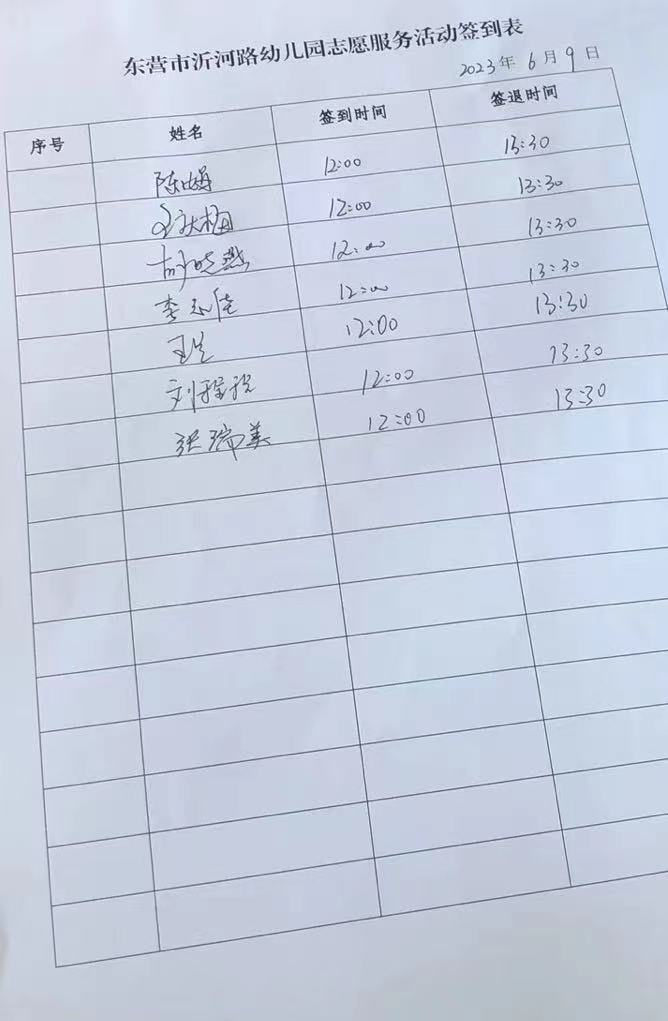 东营市沂河路幼儿园志愿服务活动签到表
2023年 6月 9日
序号 姓名 签到时间 签退时间
陈娟 12:00 13:30
12:00 13:30
胡晓燕 12:00 13:30
李 12:00 13:30
12:00 13:30
刘 12:00 13:30
张瑞美 12:00 13:30